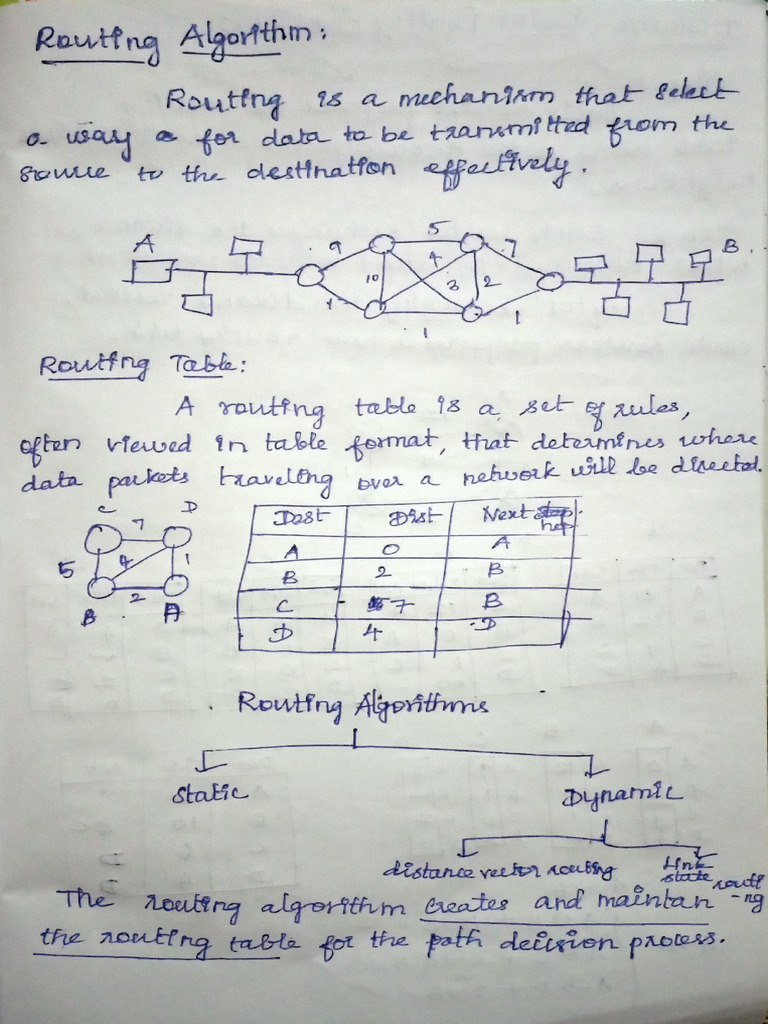 Routing Algorithm:
Routing is a mechanism that select
a way for data to be transmitted from the
source to the destination effectively.
A 9 5 7 B
10 4 3 2
1 1 1
Routing Table:
A routing table is a set of rules,
often viewed in table format, that determines where
data packets traveling over a network will be directed.
C 7 D
5 4 1
B 2 A
Dest Dist Next hop
A 0 A
B 2 B
C 7 B
D 4 D
Routing Algorithms
Static Dynamic
distance vector routing Link state routi-ng
The routing algorithm creates and maintan
the routing table for the path decision process.